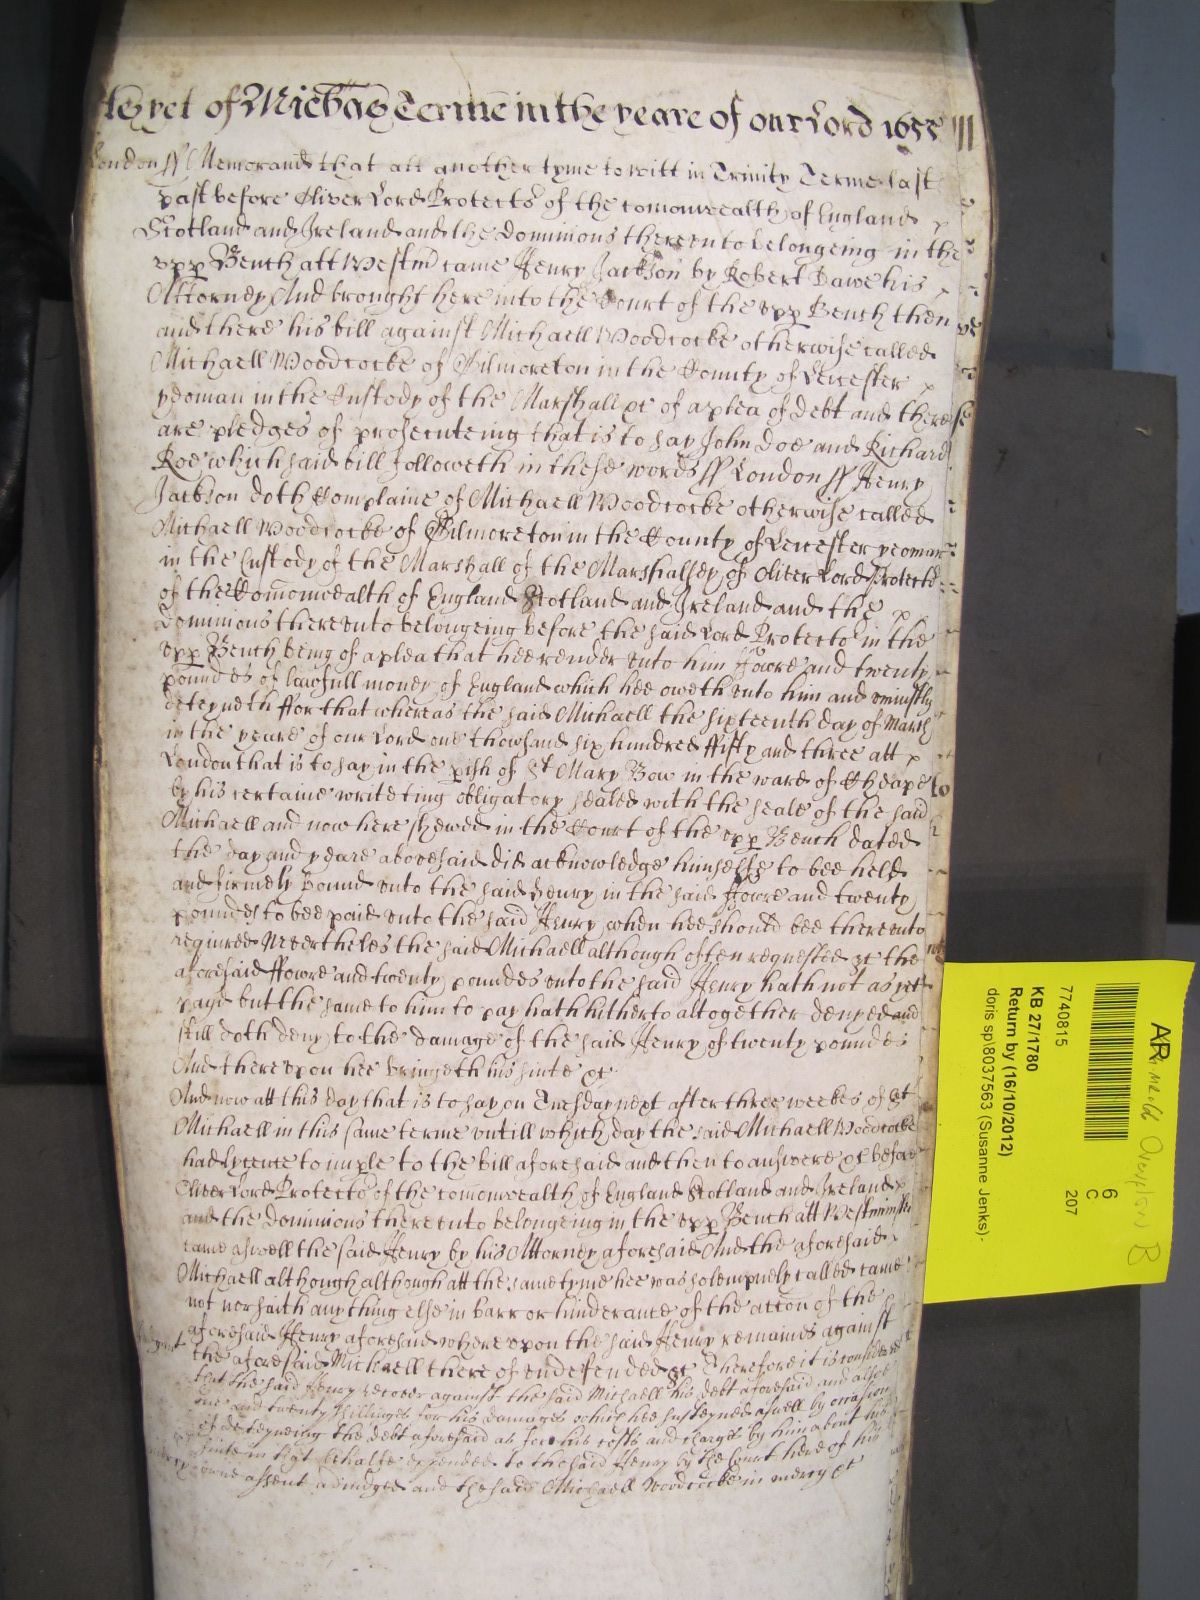 As yet of Michās Terme in the yeare of our Lord 1655
London ss Memorand that att another tyme to witt in Trinity Terme last
past before Oliver Lord Protector of the comonwealth of England
Scotland and Ireland and the Dominions thereunto belongeing in the
upp Bench att Westmr came Henry Jackson by Robert Dawe his
Attorney And brought here into the Court of the upp Bench then
and there his bill against Michaell Woodcocke otherwise called
Michaell Woodcocke of Gilmoreton in the County of Leicester
yeoman in the Custody of the Marshall &c of a plea of Debt and there
are pledges of prosecuteing that is to say John Doe and Richard
Roe which said bill followeth in these words ss London ss Henry
Jackson doth Complaine of Michaell Woodcocke otherwise called
Michaell Woodcocke of Gilmoreton in the County of Leicester yeoman
in the Custody of the Marshall of the Marshalsey of Oliver Lord Protector
of the Comonwealth of England Scotland and Ireland and the
Dominions thereunto belongeing before the said Lord Protector in the
upp Bench being of a plea that hee render unto him ffowre and twenty
poundes of lawfull money of England which hee oweth unto him and uniustly
deteyneth ffor that whereas the said Michaell the sixteenth day of March
in the yeare of our Lord one thowsand six hundred ffifty and three att
London that is to say in the pish of St Mary Bow in the ward of Cheape
by his certaine writeting obligatory sealed with the seale of the said
Michaell and now here shewed in the Court of the upp Bench dated
the day and yeare abovesaid did acknowledge himselfe to bee held
and firmely bound unto the said Henry in the said ffowre and twenty
poundes to bee paid unto the said Henry when hee should bee thereunto
required Neertheles the said Michaell although often requested &c the
aforesaid ffowre and twenty poundes unto the said Henry hath not as yet
payd but the same to him to pay hath hitherto altogether denyed and
still doth deny to the damage of the said Henry of twenty poundes
And thereupon hee bringeth his suite &c
And now att this day that is to say on Tuesday next after three weekes of St
Michaell in this same terme untill which day the said Michaell Woodcocke
had lycence to imple to the bill aforesaid and then to answere &c before
Oliver Lord Protector of the comonwealth of England Scotland and Ireland
and the Dominions thereunto belongeing in the upp Bench att Westminster
came aswell the said Henry by his Attorney aforesaid And the aforesaid
Michaell although although att the same tyme hee was solempnely called came
not nor saith any thing else in barr or hinderance of the accon of the
aforesaid Henry aforesaid whereupon the said Henry remaines against
the aforesaid Michaell thereof undefended &c Therefore it is considered
that the said Henry recover against the said Michaell his debt aforesaid and alsoe
one and twenty shillinges for his damages which hee susteyned aswell by occasion
of deteyneing the debt aforesaid as for his costs and charges by him about his
suite in that behalfe expended to the said Henry by the Court here of his
owne assent adiudged and the said Michaell Woodcocke in mercy &c
AR
6
C
207
7740815
KB 27/1780
Return by (16/10/2012)
doris sp\8037563 (Susanne Jenks)-